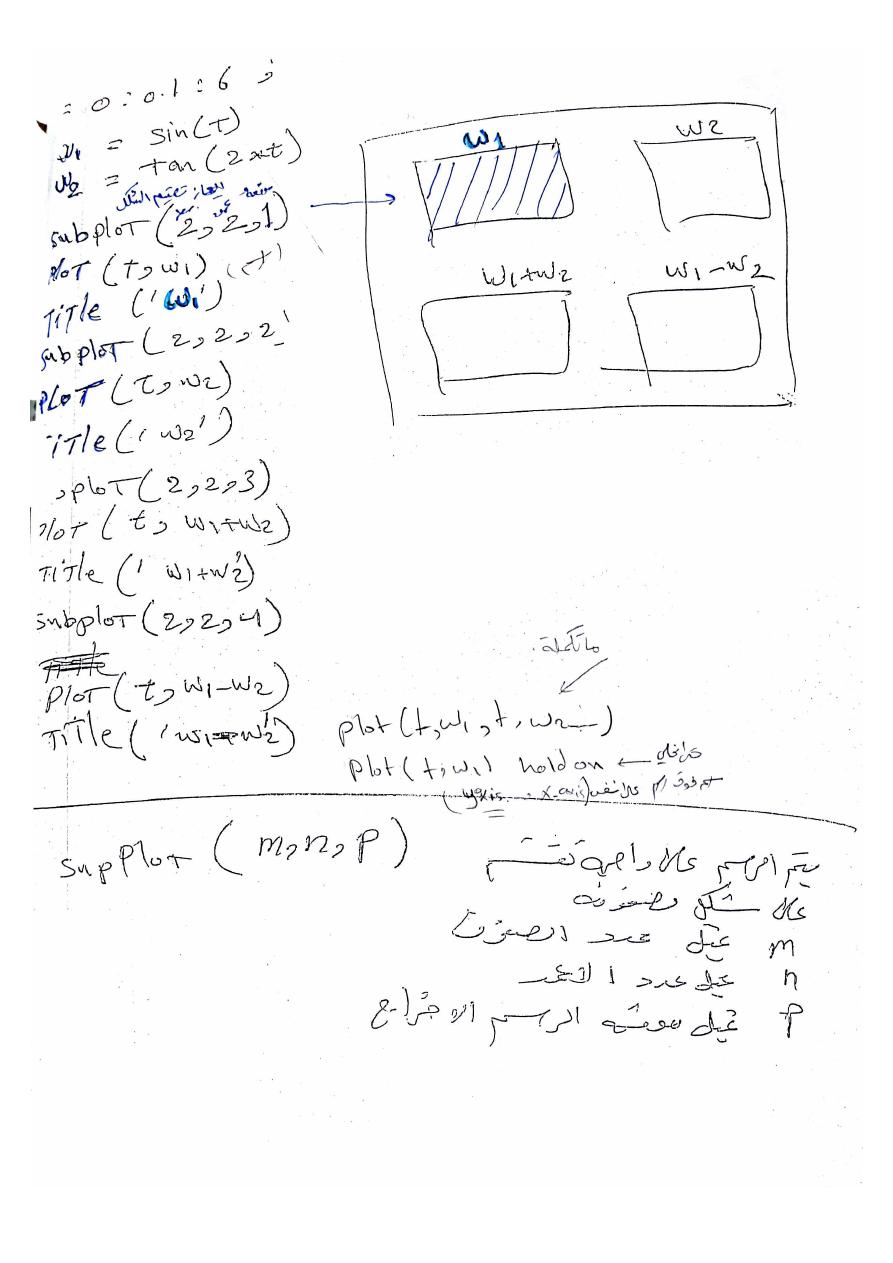 = 0 : 0.1 : 6 ;
w1 = sin(t)
w2 = tan(2*t)
subplot (2,2,1)
plot (t,w1)
Title ('w1')
subplot (2,2,2
plot (t,w2)
Title ('w2')
plot (2,2,3)
plot (t, w1+w2)
Title (' w1+w2')
subplot (2,2,4)
plot (t, w1-w2)
Title ('w1-w2')
w1
w2
w1+w2
w1-w2
plot (t,w1,t,w2
plot (t,w1) hold on ←
y-axis x-axis
supplot (m,n,p)
يتم الرسم على واجهة تقسم
على شكل مصفوفة
m تمثل عدد الصفوف
n تمثل عدد الاعمدة
p تمثل موقع الرسم الاخراج